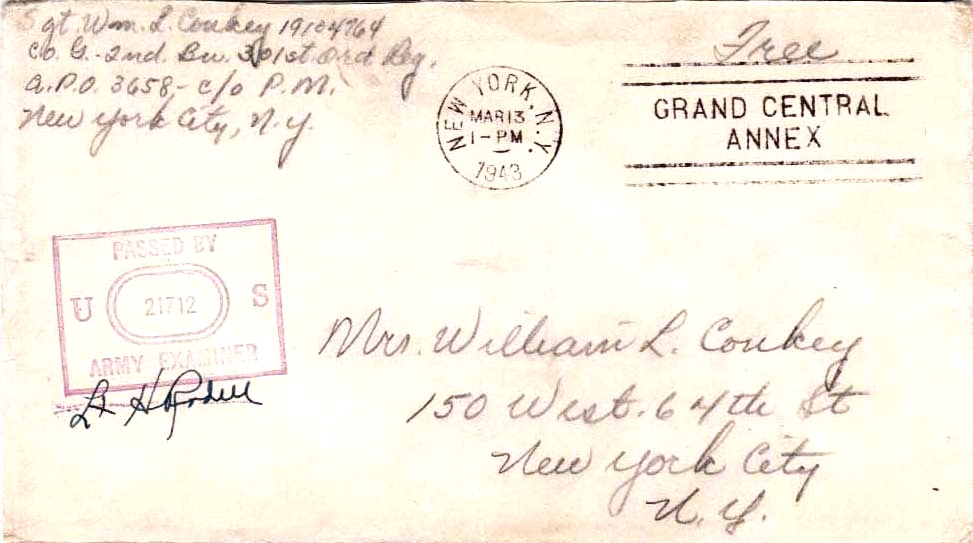 Sgt. Wm. L. Conkey 19104764
Co. G.-2nd. Bn. 301st Ord Reg.
A.P.O. 3658 - c/o P.M.
New York City, N.Y.
NEW YORK, N.Y.
MAR 13
1-PM
1943
Free
GRAND CENTRAL
ANNEX
PASSED BY
U 21712 S
ARMY EXAMINER
Lt H
Mrs. William L. Conkey
150 West. 64th St
New York City
N.Y.